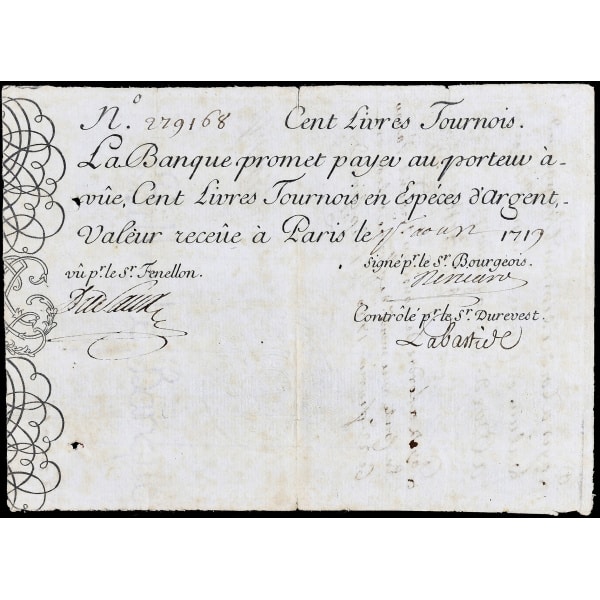 N.o 279168 Cent Livres Tournois.
La Banque promet payer au porteur à-
vûe, Cent Livres Tournois en Espéces d'Argent,
Valeur receüe à Paris le 1719
vû p.r le S.r Fenellon.
signé p.r le S.r Bourgeois.
Contrôlé p.r le S.r Durevest.
Labastide